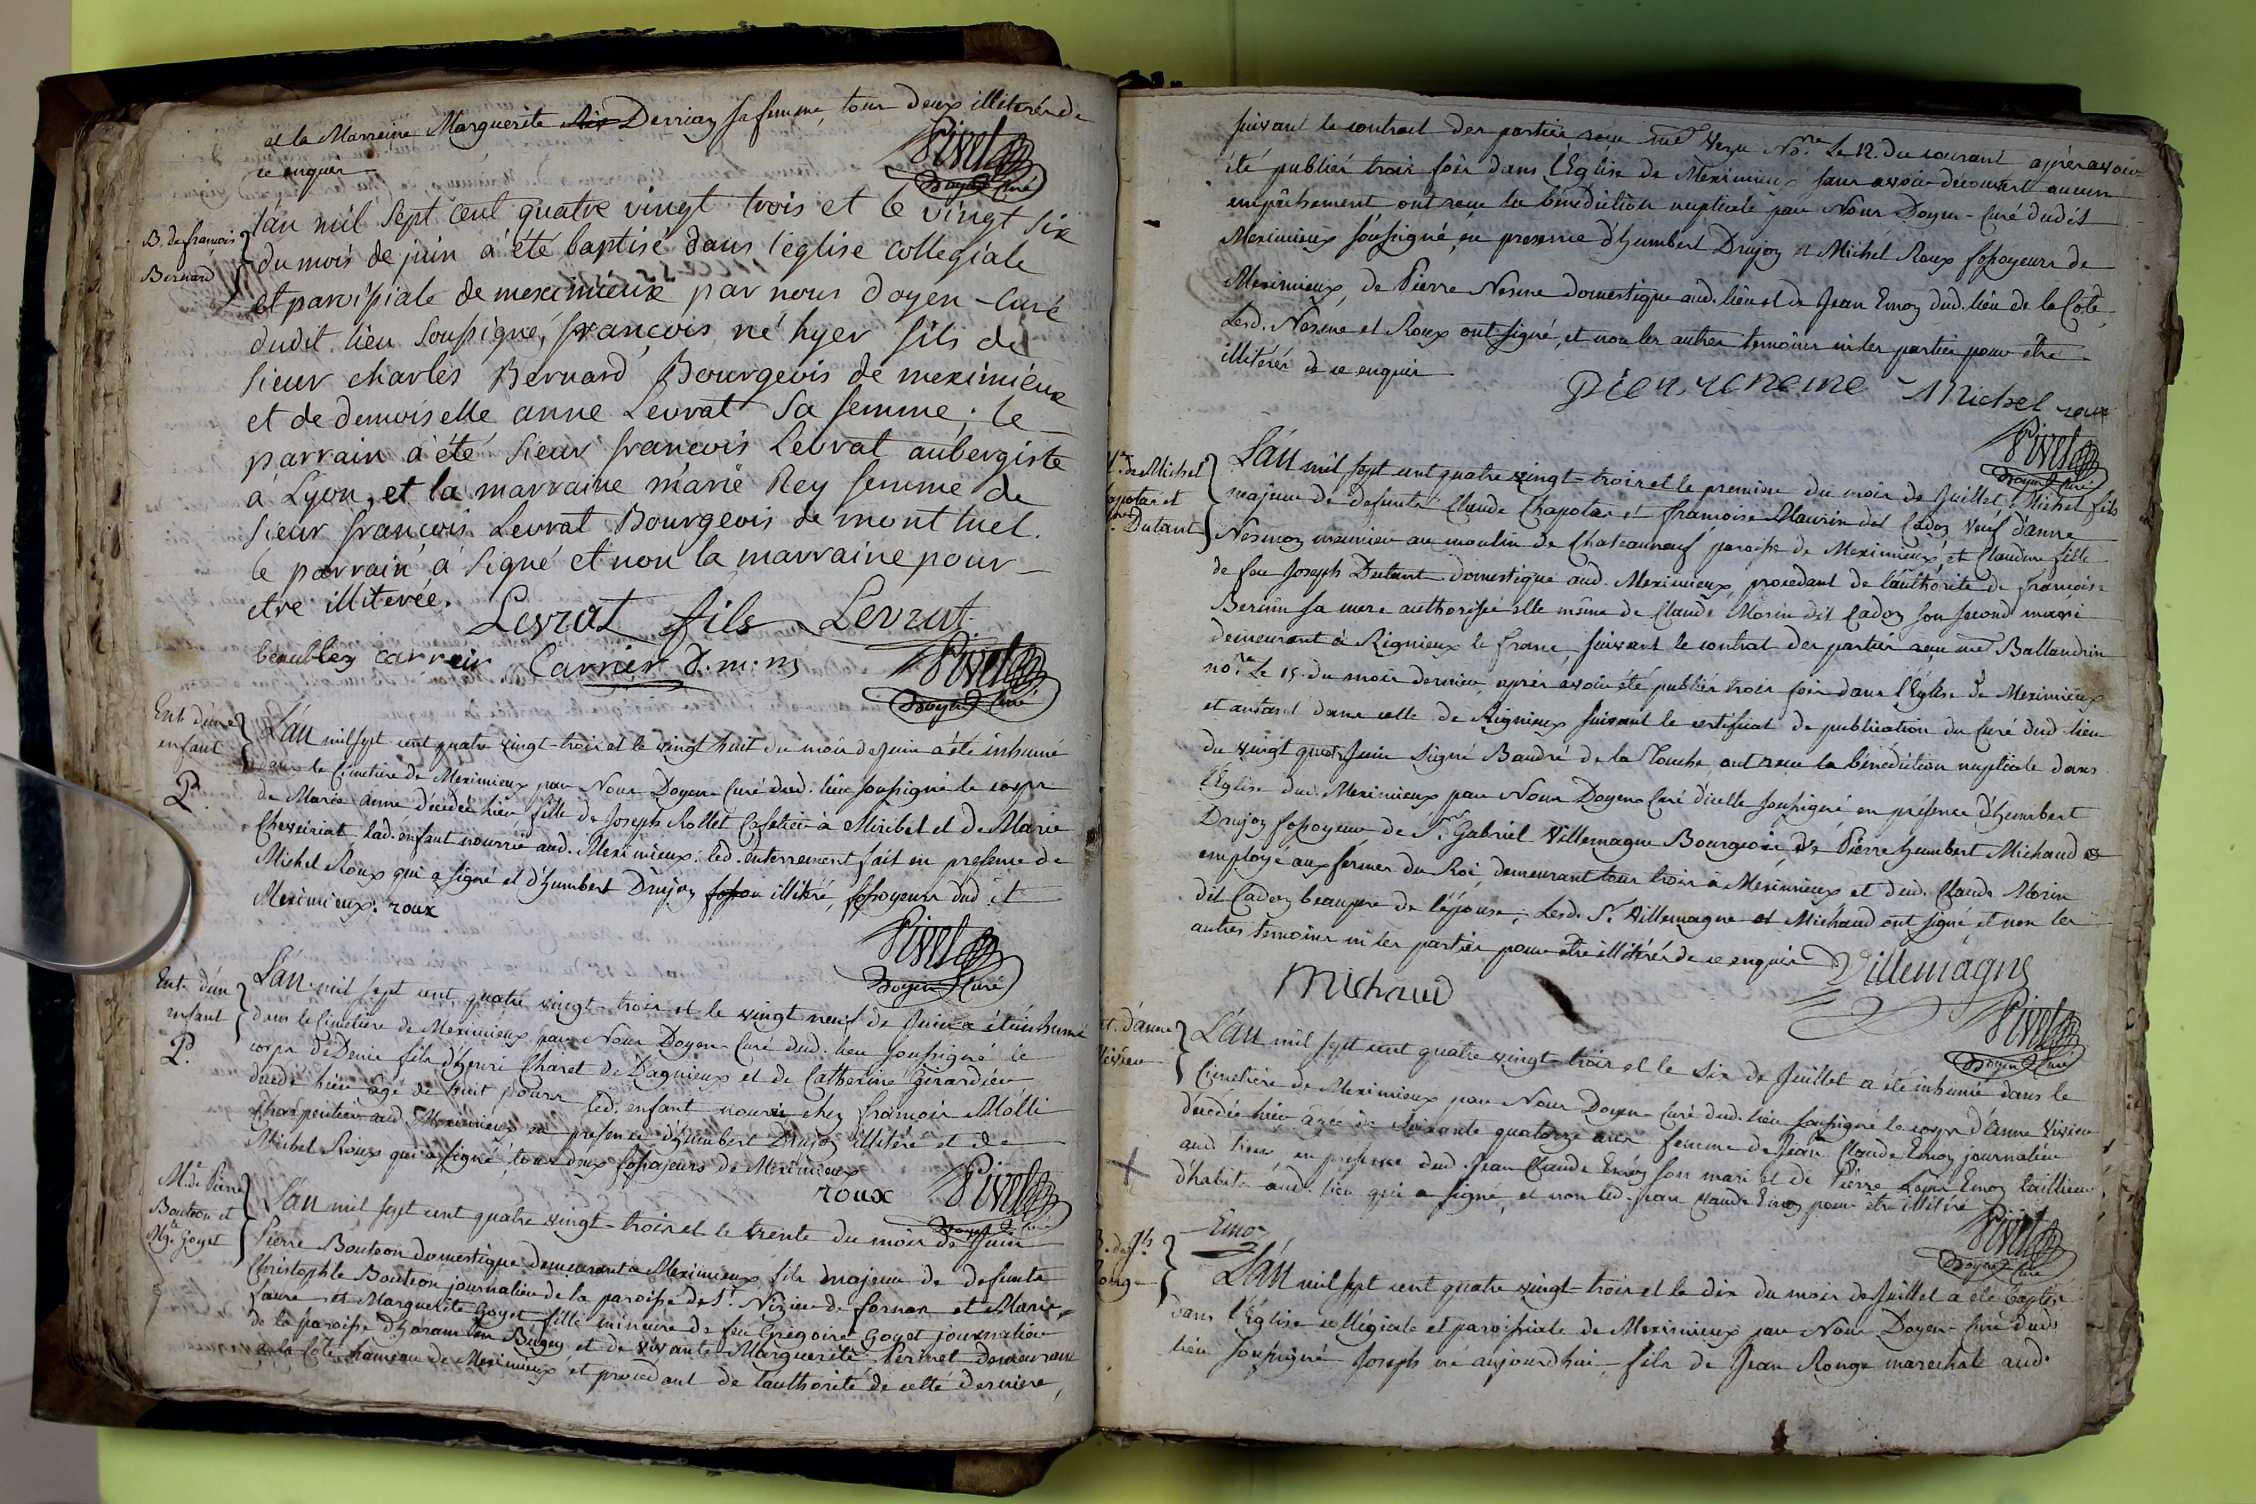 et la Marreine Marguerite Derriaz sa femme, tous deux illiterés de
ce enquis
Pivet
Doyen Curé
B. de françois
Bernard
l'an mil sept cent quatre vingt trois et le vingt six
du mois de juin a été baptisé dans l'eglise collegiale
et paroissiale de meximieux par nous doyen-curé
dudit lieu soussigné, françois né hyer fils de
sieur charles Bernard Bourgeois de meximieux
et de demoiselle anne Levrat sa femme; le
parrain a été sieur françois Levrat aubergiste
à Lyon, et la marraine marie Rey femme de
sieur françois Levrat Bourgeois de montluel.
le parrain a signé et non la marraine pour
etre illiterée.
Levrat fils Levrat
carrier Carrier d. m. m
Pivet
Doyen Curé
Ent. d'une
enfant
L'an mil sept cent quatre vingt-trois et le vingt huit du mois de Juin a été inhumé
dans le Cimetiere de Meximieux par Nous Doyen Curé dud. lieu soussigné le corps
de Marie anne décédée hier fille de Joseph Rollet Cafetier à Miribel et de Marie
Chevriat lad. enfant nourrie aud. Meximieux. led. enterrement fait en presence de
Michel Roux qui a signé et d'humbert Drujon illitéré, fossoyeurs dud it
Meximieux. roux
Pivet
Doyen Curé
Ent. d'un
enfant
L'an mil sept cent quatre vingt-trois et le vingt neuf de Juin a été inhumé
dans le Cimetiere de Meximieux par Nous Doyen Curé dud. lieu soussigné le
corps de Denis fils d'henri Charet de Dagnieux et de Catherine Girardieu
décédé hier agé de huit jours led. enfant nourri chez françois Molli
charpentier aud. Meximieux en presence d'humbert Drujon illitéré et de
Michel Roux qui a signé, tous deux fossoyeurs de Meximieux
roux
Pivet
Doyen Curé
M. de Pierre
Bouteon et
Mg.te Goyet
L'an mil sept cent quatre vingt-trois et le trente du mois de Juin
Pierre Bouteon domestique demeurant à Meximieux fils majeur de defunts
Christophle Bouteon journalier de la paroisse de St. Nizier de fornas et Marie
faure et Marguerite Goyet fille mineure de feu Grégoire Goyet journalier
de la paroisse d'haram en Bugey et de vivante Marguerite Perinet demeurant
à la Côte hameau de Meximieux et procedant de l'authorité de cette derniere,
suivant le contract des parties reçu me Vezu No.re le 12. du courant après avoir
été publiés trois fois dans l'Eglise de Meximieux sans avoir découvert aucun
empêchement ont reçu la bénédiction nuptiale par Nous Doyen-Curé dudit
Meximieux soussigné, en presence d'humbert Drujon et Michel Roux fossoyeurs de
Meximieux, de Pierre Nesme domestique aud. lieu et de Jean Emoz dud. lieu de la Cote,
Lesd. Nesme et Roux ont signé, et non les autres temoins ni les parties pour être
illitérés de ce enquis
Pierre neme Michel roux
Pivet
Doyen Curé
M. de Michel
Chapotar et
Dutant
L'an mil sept cent quatre vingt-trois et le premier du mois de Juillet, Michel fils
majeur de defunts Claude Chapotar et francoise Maurin dit Cadoz veuf d'anne
Nesmoz meunier au moulin de Chateauneuf paroisse de Meximieux, et Claudine fille
de feu Joseph Dutant domestique aud. Meximieux, procedant de l'authorité de francoise
Bernin sa mere authorisée elle même de Claude Morin dit Cadoz son second mari
demeurant à Rignieux le franc, suivant le contrat des parties reçu me Ballandrin
no.re Le 15. du mois dernier, après avoir été publiés trois fois dans l'Eglise de Meximieux
et autant dans celle de Rignieux suivant le certificat de publication du Curé dud. lieu
du vingt quatre Juin signé Baudré de la Touche, ont reçu la bénédiction nuptiale dans
l'Eglise dud. Meximieux par Nous Doyen Curé d'icelle soussigné en présence d'humbert
Drujon fossoyeur de Sr. Gabriel Villemagne Bourgeois, de Pierre humbert Michaud
employé aux fermes du Roi, demeurant tous trois à Meximieux et dud. Claude Morin
dit Cadoz beaupere de l'épouse; Lesd. Sr. Villemagne et Michaud ont signé et non les
autres temoins ni les parties pour être illitérés de ce enquis
Villemagne
Michaud
Pivet
Doyen Curé
Ent. d'anne
L'an mil sept cent quatre vingt-trois et le six de Juillet a été inhumée dans le
Cimetiere de Meximieux par Nous Doyen-Curé dud. lieu soussigné le corps d'anne
décédée hier agée de soixante quatorze ans femme de Jean Claude Emoz journalier
aud. lieu en presence dud. Jean Claude Emoz son mari et de Pierre Louis Emoz taillieur
d'habits aud. lieu qui a signé, et non led. jean claude Emoz pour être illitéré
Emoz
Pivet
Doyen Curé
B. de Jh
Ronge
L'an mil sept cent quatre vingt-trois et le dix du mois de Juillet a été baptisé
dans l'Eglise collégiale et paroissiale de Meximieux par Nous Doyen-Curé dud.
lieu soussigné Joseph né aujourdhui, fils de Jean Ronge marechal aud.